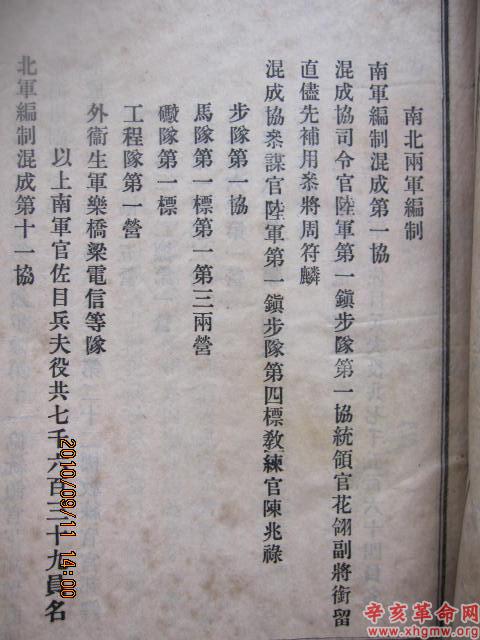 南北兩軍編制
南軍編制混成第一協
混成協司令官陸軍第一鎮步隊第一協統領官花翎副將銜留
直儘先補用叅將周符麟
混成協叅謀官陸軍第一鎮步隊第四標教練官陳兆祿
步隊第一協
馬隊第一標第一第三兩營
礮隊第一標
工程隊第一營
外衞生軍樂橋梁電信等隊
以上南軍官佐目兵夫役共七千六百三十九員名
北軍編制混成第十一協
2010/09/11 14:00
辛亥革命网
www.xhgmw.org